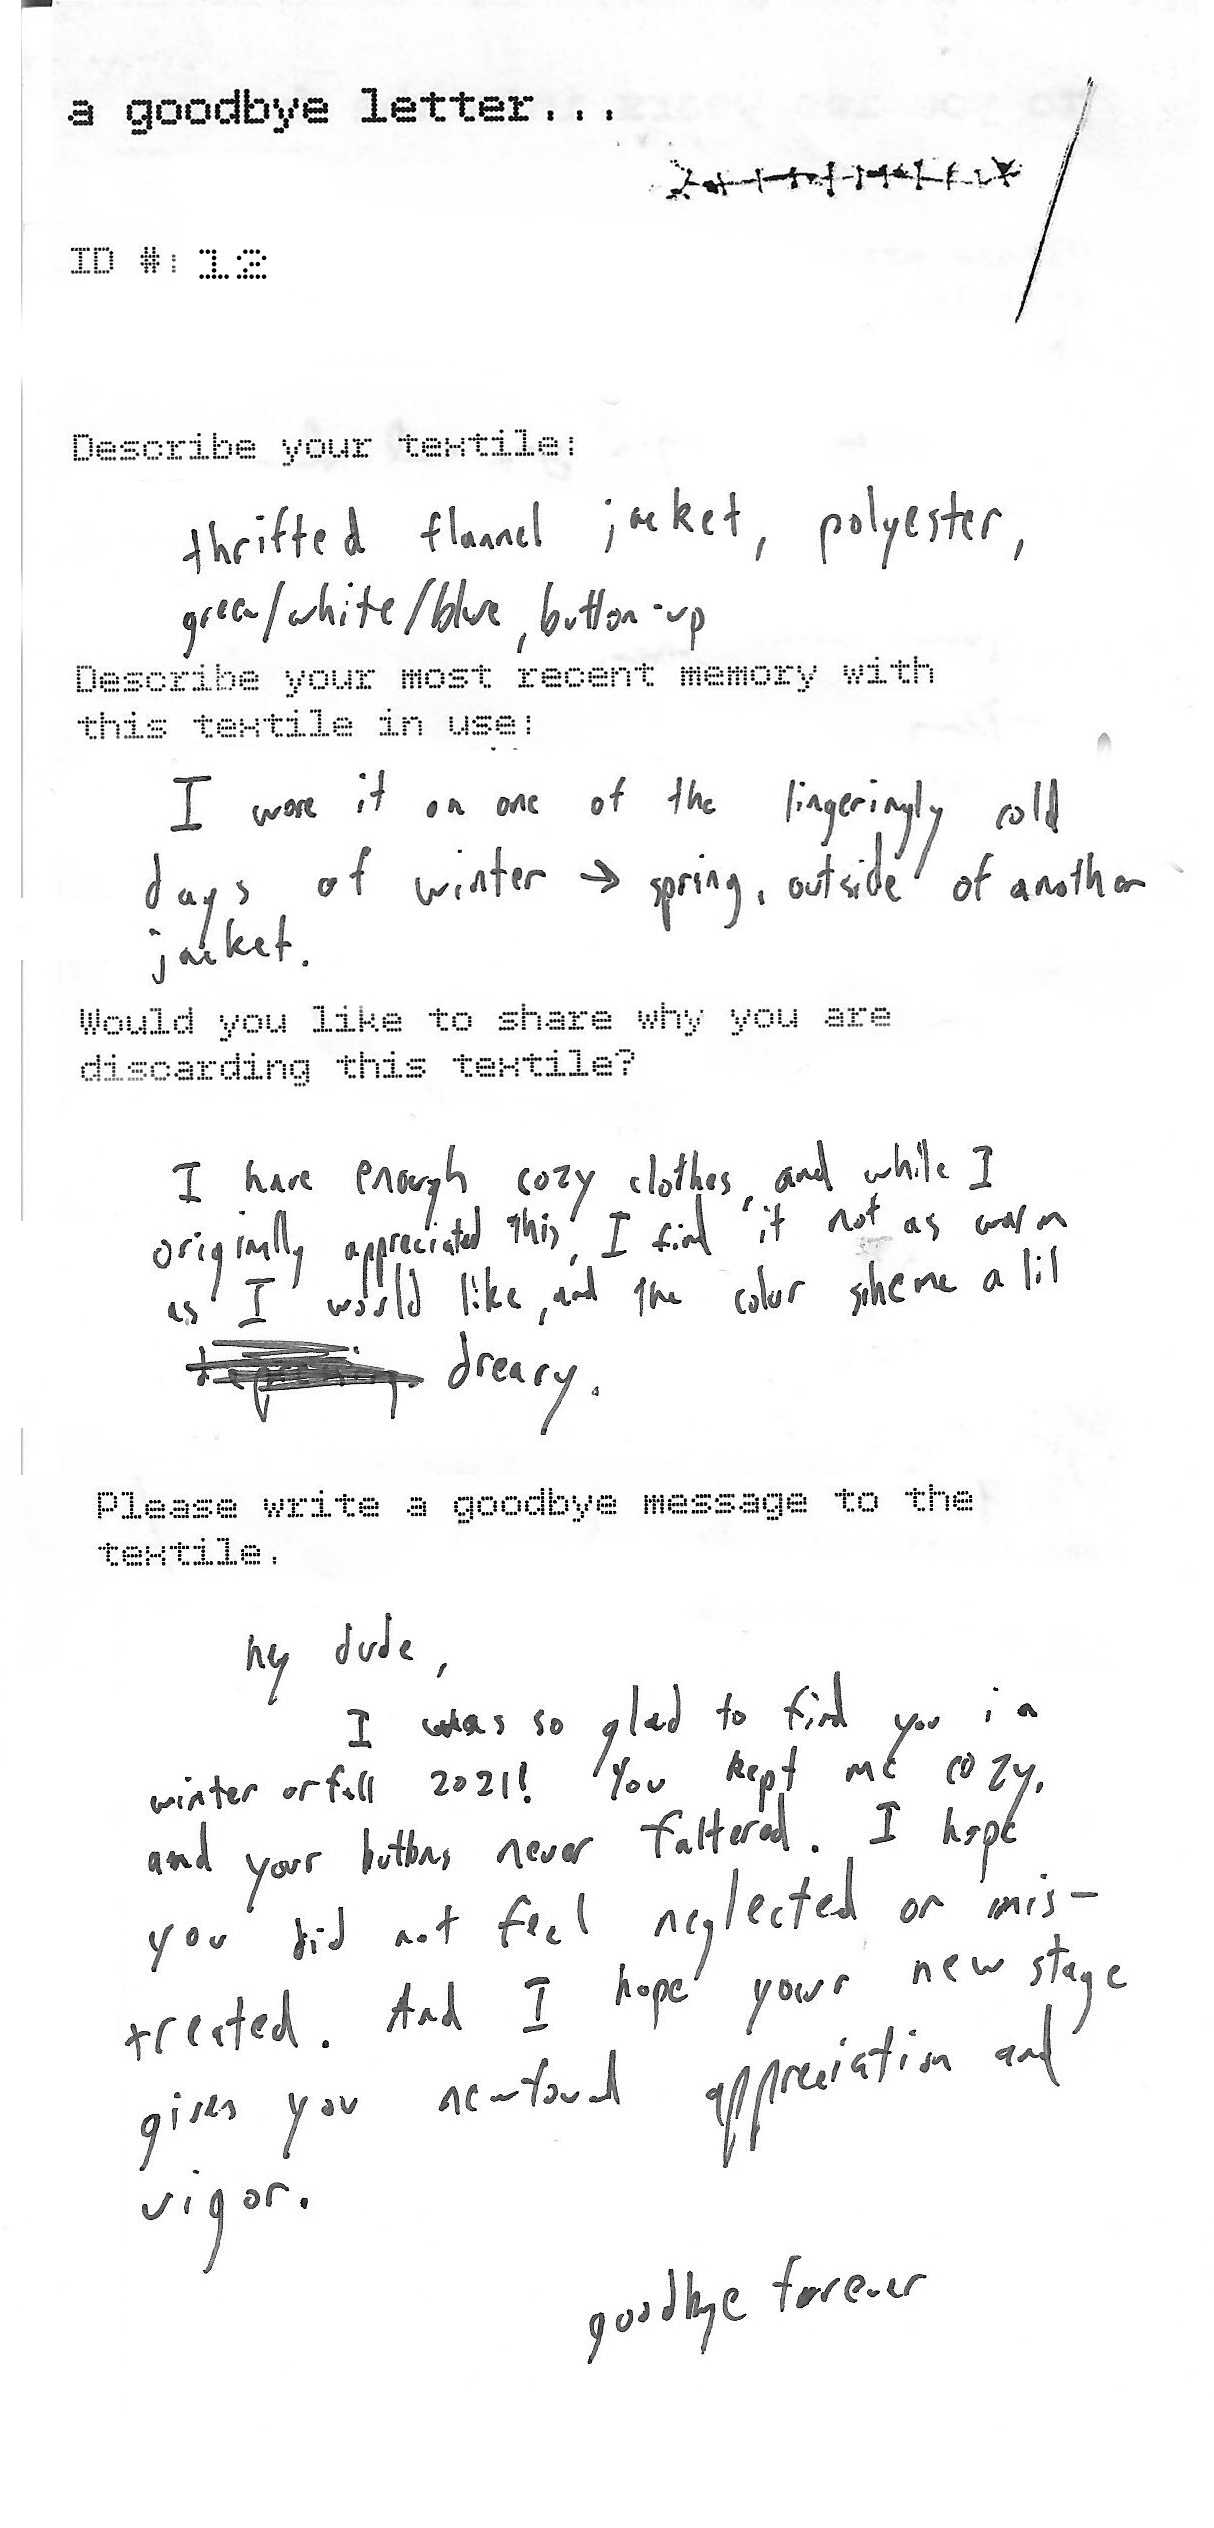 a goodbye letter...
ID #: 12
Describe your textile:
thrifted flannel jacket, polyester,
green/white/blue, button-up
Describe your most recent memory with
this textile in use:
I wore it on one of the lingeringly cold
days of winter → spring, outside of another
jacket.
Would you like to share why you are
discarding this textile?
I have enough cozy clothes, and while I
originally appreciated this, I find it not as warm
as I would like, and the color scheme a lil
dreary.
Please write a goodbye message to the
textile.
hey dude,
I was so glad to find you in
winter or fall 2021! You kept me cozy,
and your buttons never faltered. I hope
you did not feel neglected or mis-
treated. And I hope your new stage
gives you newfound appreciation and
vigor.
goodbye forever